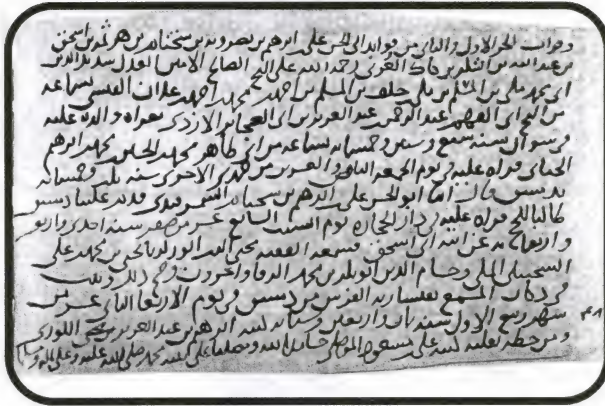 وقرات الجزء الاول والثاني من فوائد ابي الحسن علي بن ابرهيم بن نصرويه بن سختام بن هرثمة بن اسحق
بن عبد الله بن العربي رحمه الله على الشيخ الصالح الامين العدل سديد الدين
ابي محمد مكي بن المسلم بن مكي بن خلف بن المسلم بن احمد بن محمد بن احمد بن علان القيسي بسماعه
من الشيخ ابي الفهم عبد الرحمن بن عبد العزيز بن ابي العجائز الازدي بقراه والده عليه
في شوال سنه سبع وستين وخمسمايه بسماعه من ابي طاهر محمد بن الحسين بن محمد بن ابرهيم
الحنائي قراه عليه في يوم الجمعه الثاني والعشرين من الاخرى سنه وخمسمايه
بدمشق قال انا ابو الحسن علي بن ابرهيم بن سختام السمرقندي قدم علينا دمشق
طالبا للحج قراه عليه في دار الحجاره يوم السبت السابع عشر من صفر سنه احدى واربعين
واربعمايه عن ابيه ابي اسحق فسمعه الفقيه محيي الدين بن محمد بن علي
وحسام الدين ابو بكر بن محمد واخرون وصح ذلك وثبت
في دكان المسمع بقيساريه الفرش من دمشق في يوم الاربعا الثاني عشر من
شهر ربيع الاول سنه ثمان واربعين وستمايه كتبه ابرهيم بن عبد العزيز بن يحيى اللوري
ومن خطه نقلته كتبه علي بن مسعود الموصلي حامدا لله ومصليا على نبيه محمد صلى الله عليه وعلى اله وسلم